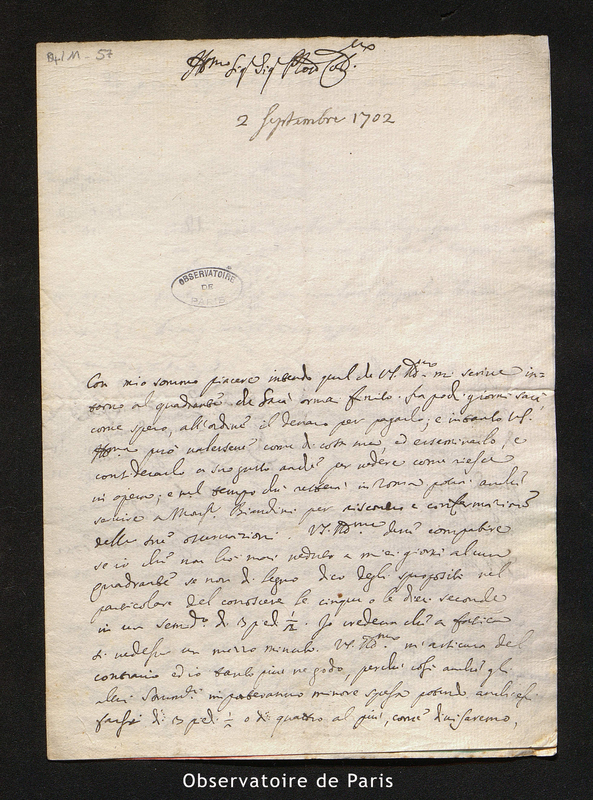 B4/11 - 57
Illmo Sig Sig
2 Septembre 1702
OBSERVATOIRE
DE
PARIS
Con mio sommo piacere intendo quel che V.S. Illma mi scrive in=
torno al quadrante che sarà ormai finito. fra pochi giorni sarà
come spero, all'ordine il denaro per pagarlo; e intanto V.S.
Illma può valersene come di cosa mia, ed esaminarlo, e
considerarlo a suo gusto anche per vedere come riesce
in opera; e nel tempo che resterà in Roma potrà anche
servire a Monsr. Bianchini per riscontro e confermazione
delle sue osservazioni. V.S. Illma deve compatire
se io che non ho mai veduto a miei giorni alcun
quadrante se non di legno dico degli spropositi nel
particolare del conoscere le cinque o le dieci seconde
in un semid.o di 3 piedi 1/2. Io credeva che a fatica
si vedesse un mezzo minuto. V.S. Illma m'assicura del
contrario ed io tanto più ne godo, perché così anche gli
altri importeranno minore spesa potendo anch'essi
farsi di 3 piedi 1/2 o di quattro al più, come diviseremo,
Observatoire de Paris